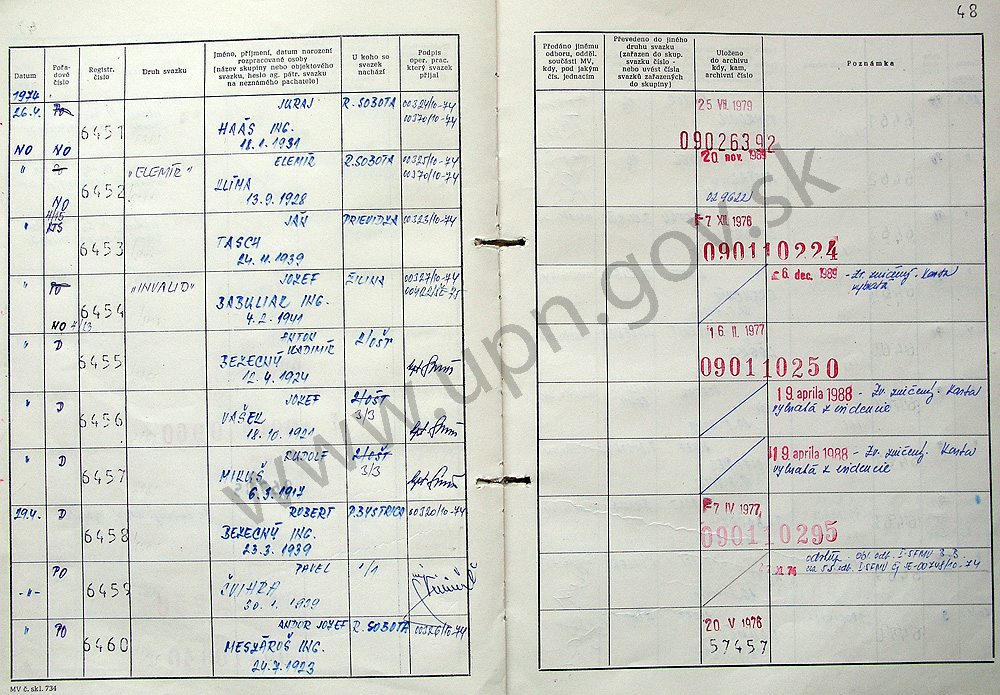 48
Datum
Pořa-
dové
číslo
Registr.
číslo
Druh svazku
Jméno, příjmení, datum narození
rozpracované osoby
(název skupiny nebo objektového
svazku, heslo ag. pátr. svazku
na neznámého pachatele)
U koho se
svazek
nachází
Podpis
oper. prac.
který svazek
přijal
Předáno jinému
odboru, odděl.
součásti MV,
kdy, pod jakým
čís. jednacím
Převedeno do jiného
druhu svazku
(zařazen do skup.
svazku číslo -
nebo uvést čísla
svazků zařazených
do skupiny)
Uloženo
do archivu
kdy, kam,
archivní číslo
Poznámka
1974
26.4. PO JURAJ R. SOBOTA 00324/10-74
6451 HAÁS ING. 00370/10-74
NO NO 18.1.1931
25 VII 1979
09026392
" ELEMÍR R. SOBOTA 00325/10-74
6452 "ELEMÍR" KLÍMA 00370/10-74
NO 13.9.1928
20 nov. 1989
029622
" JÁN PRIEVIDZA 00323/10-74
6453 TASCH
24.11.1939
7 XII 1976
090110224
" PO JOZEF ŽILINA 00327/10-74
6454 "INVALID" BABULIAK ING.
NO 4.2.1941
6. dec. 1989 - Zv. zničený. Karta
vybratá
" D ANTON VLADIMÍR 2/OŠT
6455 BEZECNÝ
12.4.1924
16. II. 1977
090110250
" D JOZEF 2/OŠT
6456 VAŠEK 3/3
18.10.1921
19. aprila 1988 - Zv. zničený. Karta
vybratá z evidencie
" D RUDOLF 2/OŠT
6457 MIKUŠ 3/3
6.3.1917
19. aprila 1988 - Zv. zničený. Karta
vybratá z evidencie
29.4. D ROBERT P. BYSTRICA 00320/10-74
6458 BEZECNÝ ING.
23.3.1939
7 IV 1977
090110295
-"- PO PAVEL 1/1
6459
30.1.1939
" PO ANDOR JOZEF R. SOBOTA 00326/10-74
6460 MESZÁROŠ ING.
24.7.1923
20 V 1976
57457
MV č. skl. 734
www.upn.gov.sk